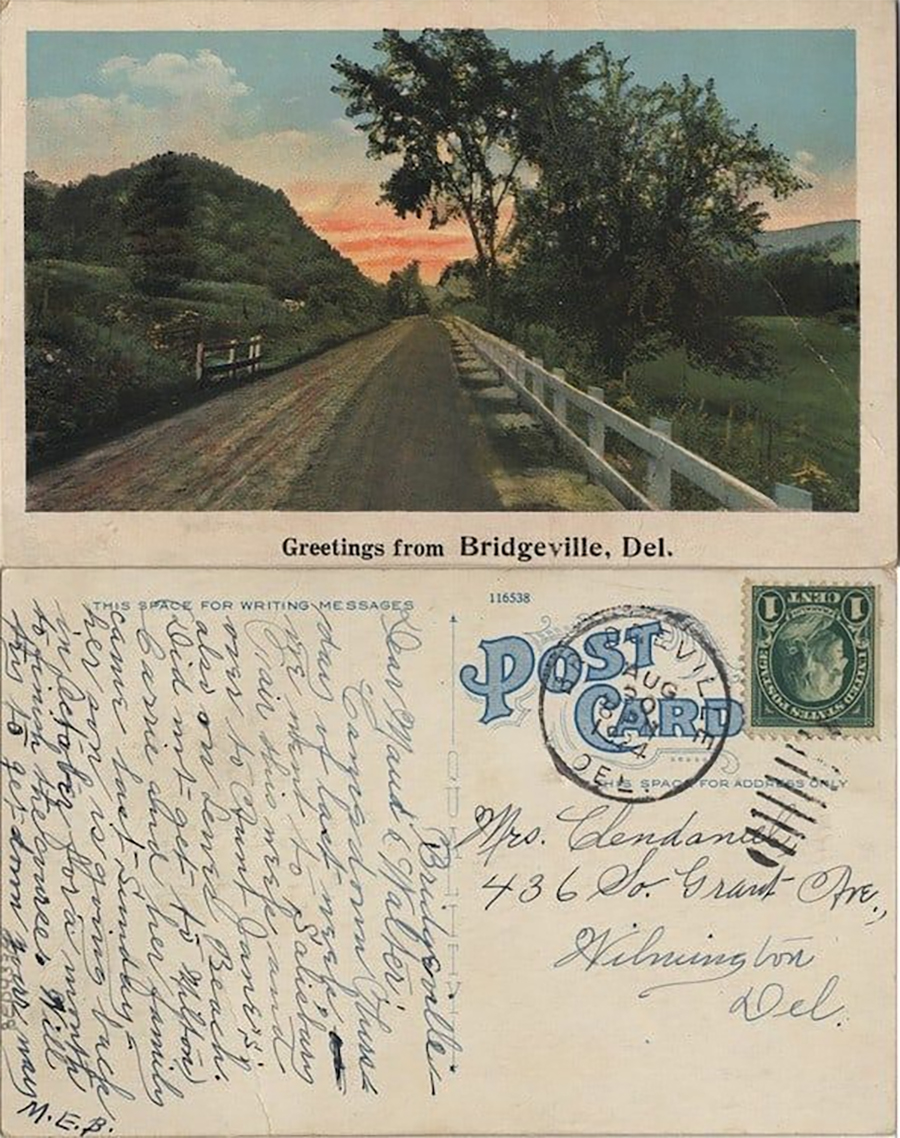 Greetings from Bridgeville, Del.
THIS SPACE FOR WRITING MESSAGES
116538
POST
CARD
THIS SPACE FOR ADDRESS ONLY
AUG
DEL.
UNITED STATES POSTAGE
1 CENT 1
Mrs. Clendaniel
436 So. Grant Ave.,
Wilmington
Del.
Bridgeville—
Dear Maud & Walter:
Came down Thurs
day of last week
We went to Salisbury
Fair this week and
over to Aunt Jane's;
also on Lewes Beach.
Did not get to Milton
Carrie and her family
came last Sunday
her son is going back
in October for a month
to finish the course. Will
try to get down your way
M.E.B.